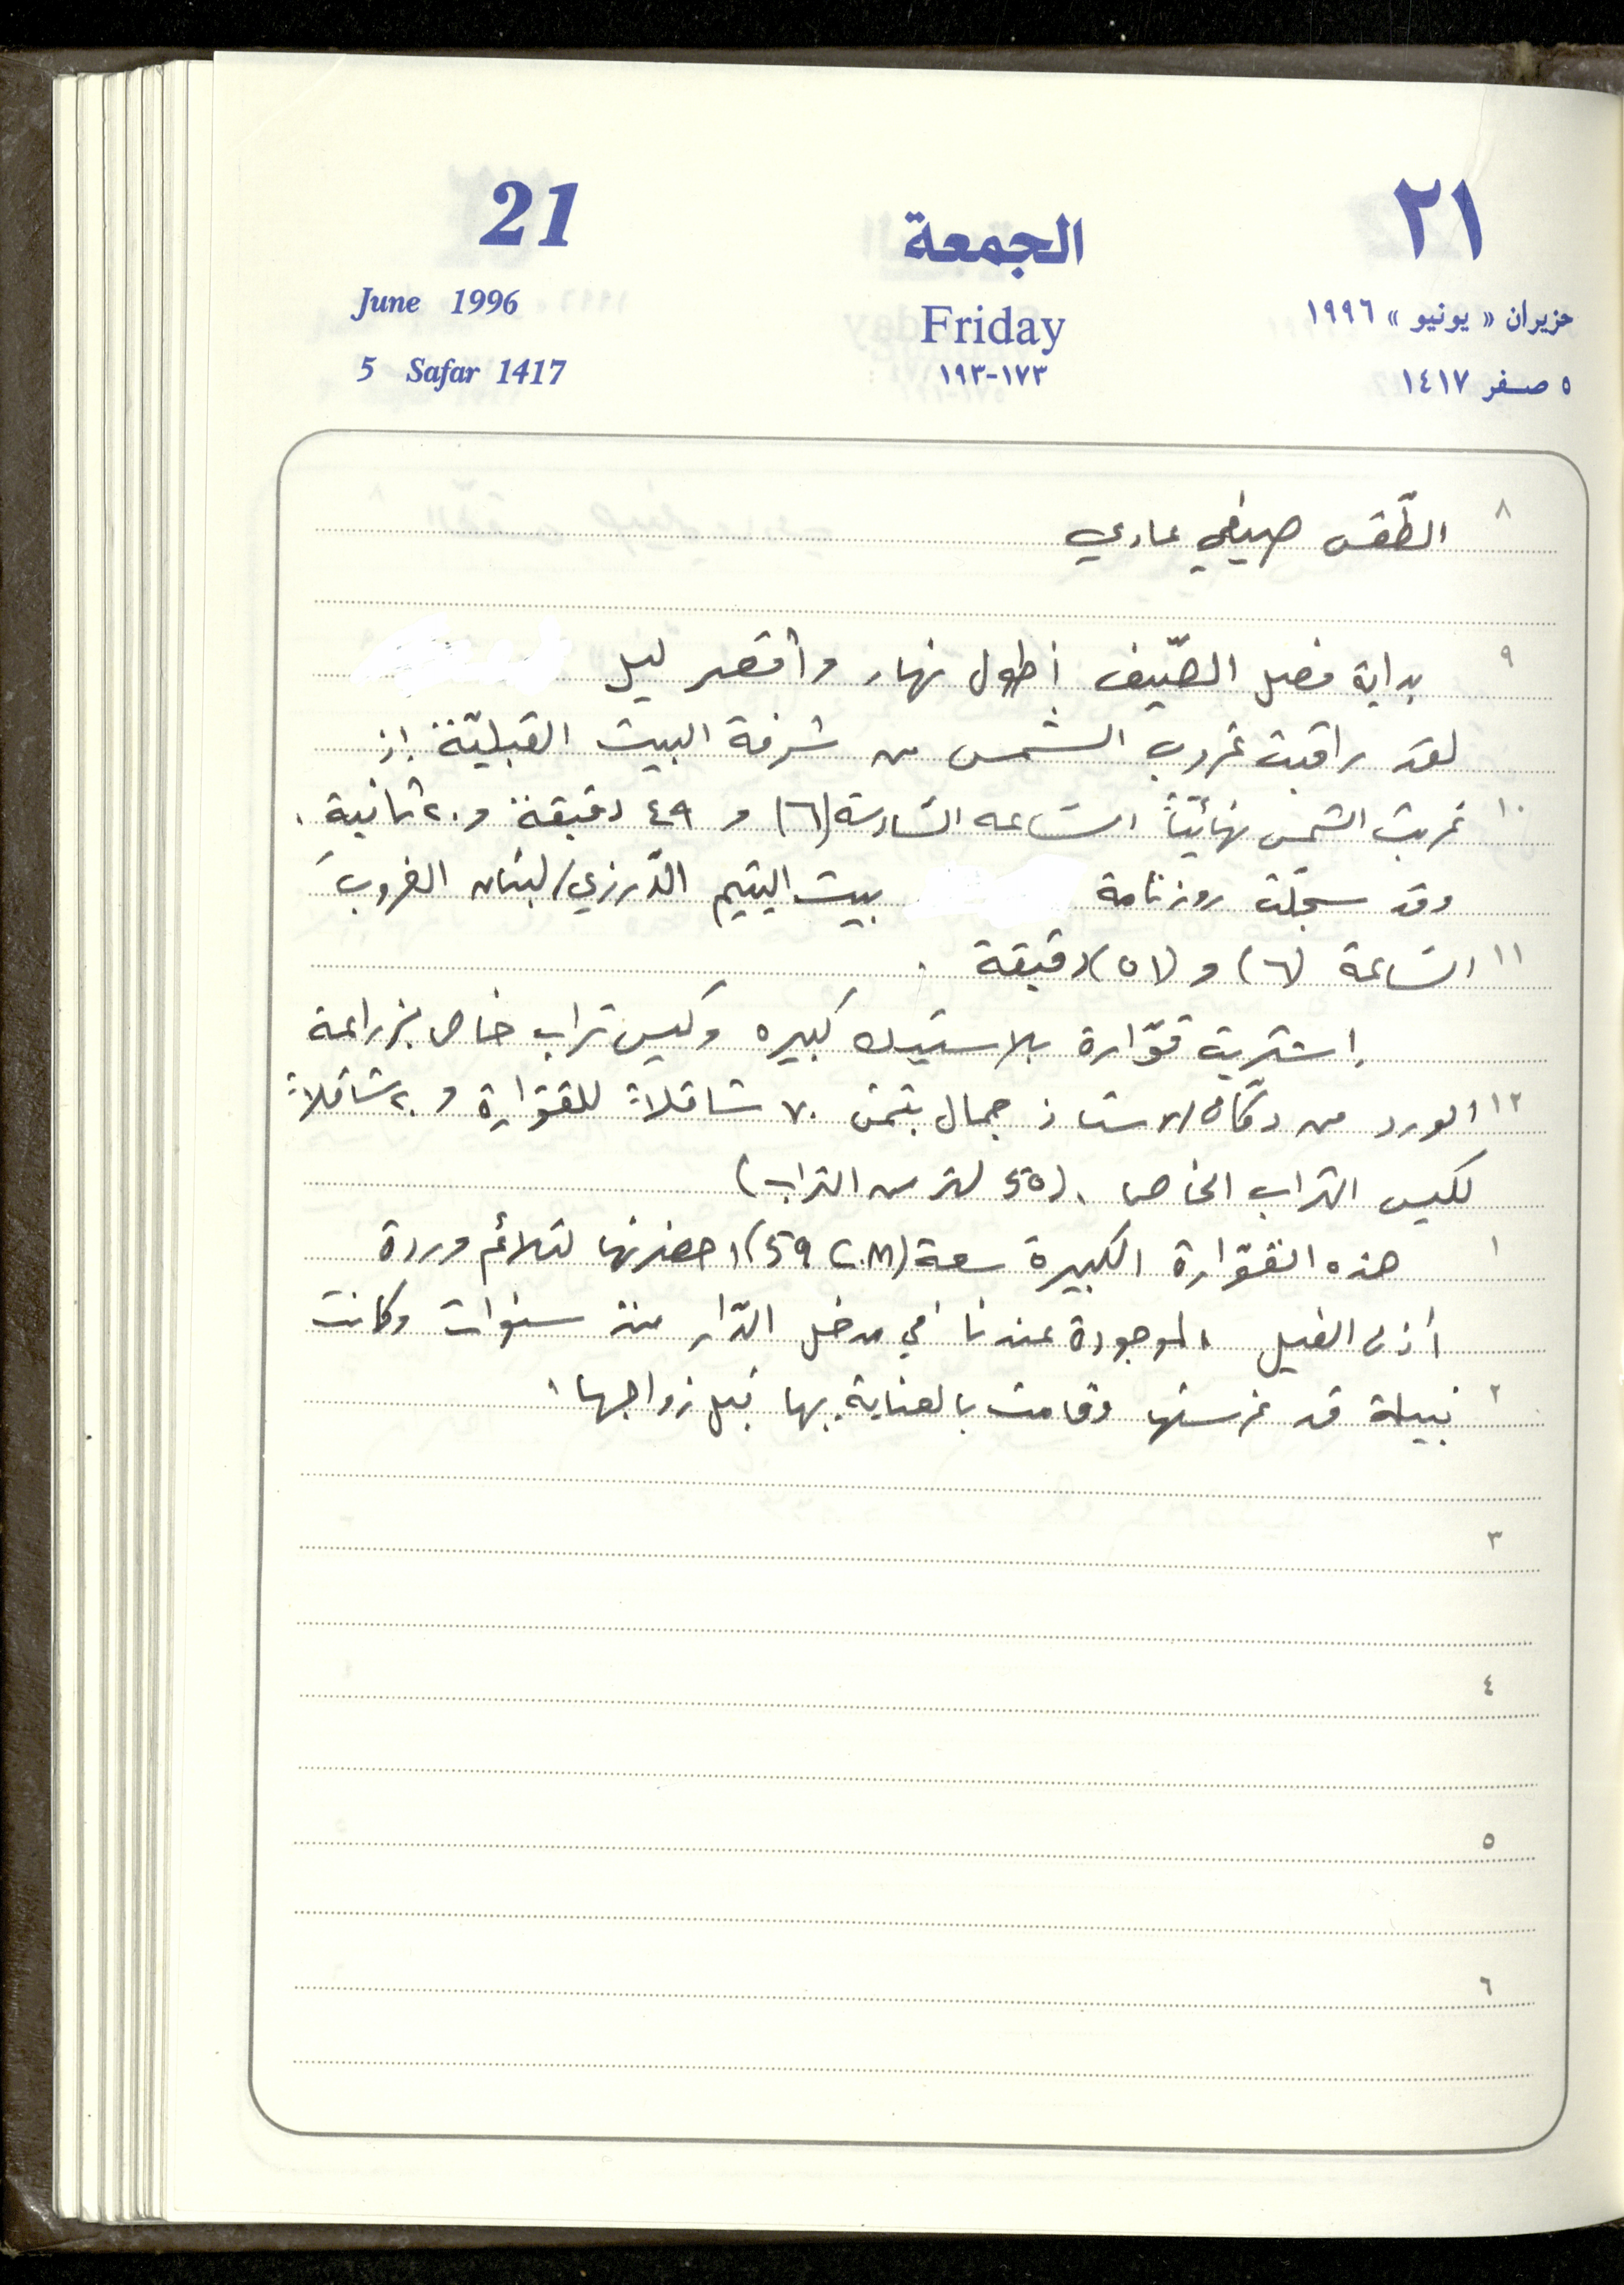 21 الجمعة ٢١
June 1996 Friday حزيران « يونيو » ١٩٩٦
5 Safar 1417 ١٧٣-١٩٣ ٥ صفر ١٤١٧
٨ الطّقس صيفي عادي
٩ بداية فصل الصّيف أطول نهار وأقصر ليل
لقد راقبت غروب الشمس من شرفة البيت القبليّة إذ
١٠ غربت الشمس نهائيّاً السّاعه السّادسة (٦) و ٤٩ دقيقة و ٢٠ ثانية .
وقد سجّلت روزنامة بيت اليتيم الدّرزي/لبنان الغروبَ
١١ السّاعة (٦) و (٥١) دقيقة .
إشتريت قوّارة بلاستيك كبيره وكيس تراب خاص بزراعة
١٢ الورد من دكّان الاستاذ جمال بثمن ٧٠ شاقلاً للقوّارة و ٢٠ شاقلاً
لكيس التراب الخاص . (٢٥ لتر من التراب)
١ هذه القوّارة الكبيرة سعة (٥٩ C.M) احضرتها لتلائم وردة
أذن الفيل الموجودة عندنا في مدخل الدّار منذ سنوات وكانت
٢ نبيلة قد غرستها وقامت بالعناية بها قبل زواجها .
٣
٤
٥
٦